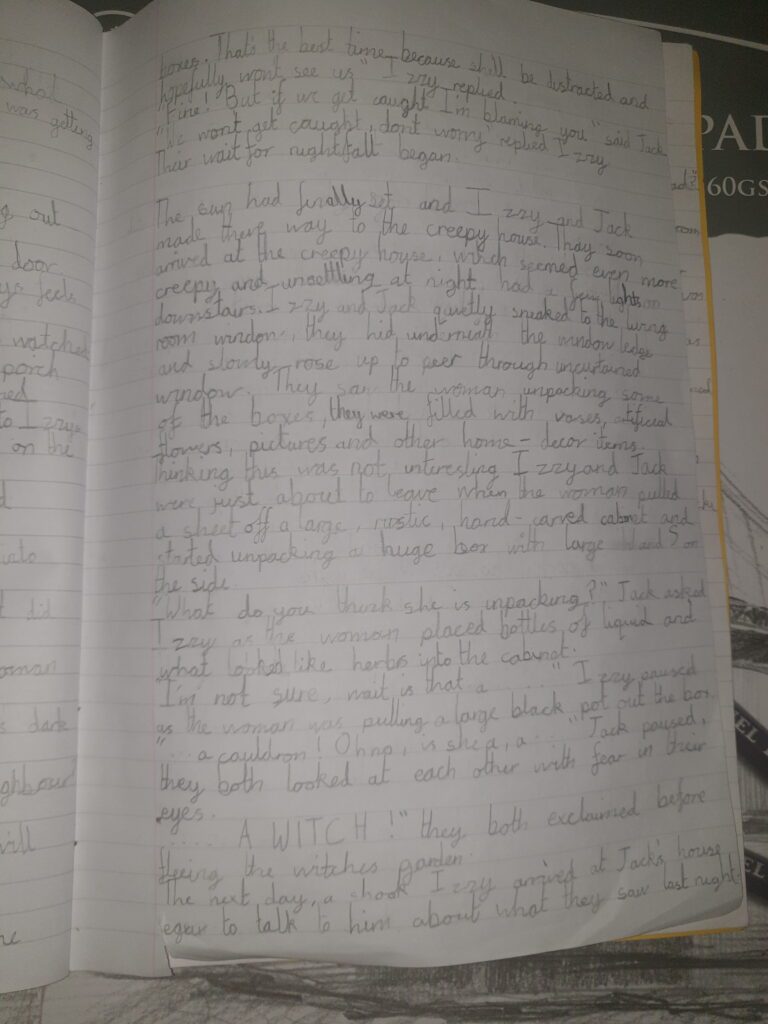 what
was getting
g out
door
ys feels
watched
porch
ied
to Izzys
on the
d
did
osman
s dark
ghbour
will
boxes. That's the best time because shill be distracted and
hopefully wont see us" Izzy replied.
"Fine! But if we get caught I'm blaming you" said Jack
"We wont get caught, dont worry" replied Izzy
Their wait for nightfall began.
The sun had finally set and Izzy and Jack
made there way to the creepy house. They soon
arrived at the creepy house, which seemed even more
creepy and unsettling at night, had a few lights on
downstairs. Izzy and Jack quietly sneaked to the living
room window, they hid underneath the window ledge
and slowly rose up to peer through uncurtained
window. They saw the woman unpacking some
of the boxes, they were filled with vases, artificial
flowers, pictures and other home-decor items.
Thinking this was not interesting Izzy and Jack
were just about to leave when the woman pulled
a sheet off a large, rustic, hand-carved cabinet and
started unpacking a huge box with large and S on
the side.
"What do you think she is unpacking?" Jack asked
Izzy as the woman placed bottles of liquid and
what looked like herbs into the cabinat.
I'm not sure, wait is that a ......" Izzy paused
as the woman was pulling a large black pot out the box.
"... a cauldron! Oh no, is she a, a ..." Jack paused,
they both looked at each other with fear in their
eyes.
..... A WITCH!" they both exclaimed before
fleeing the witches garden.
The next day, a shook Izzy arrived at Jack's house
egar to talk to him about what they saw last night
PAD
60GS
ad?"